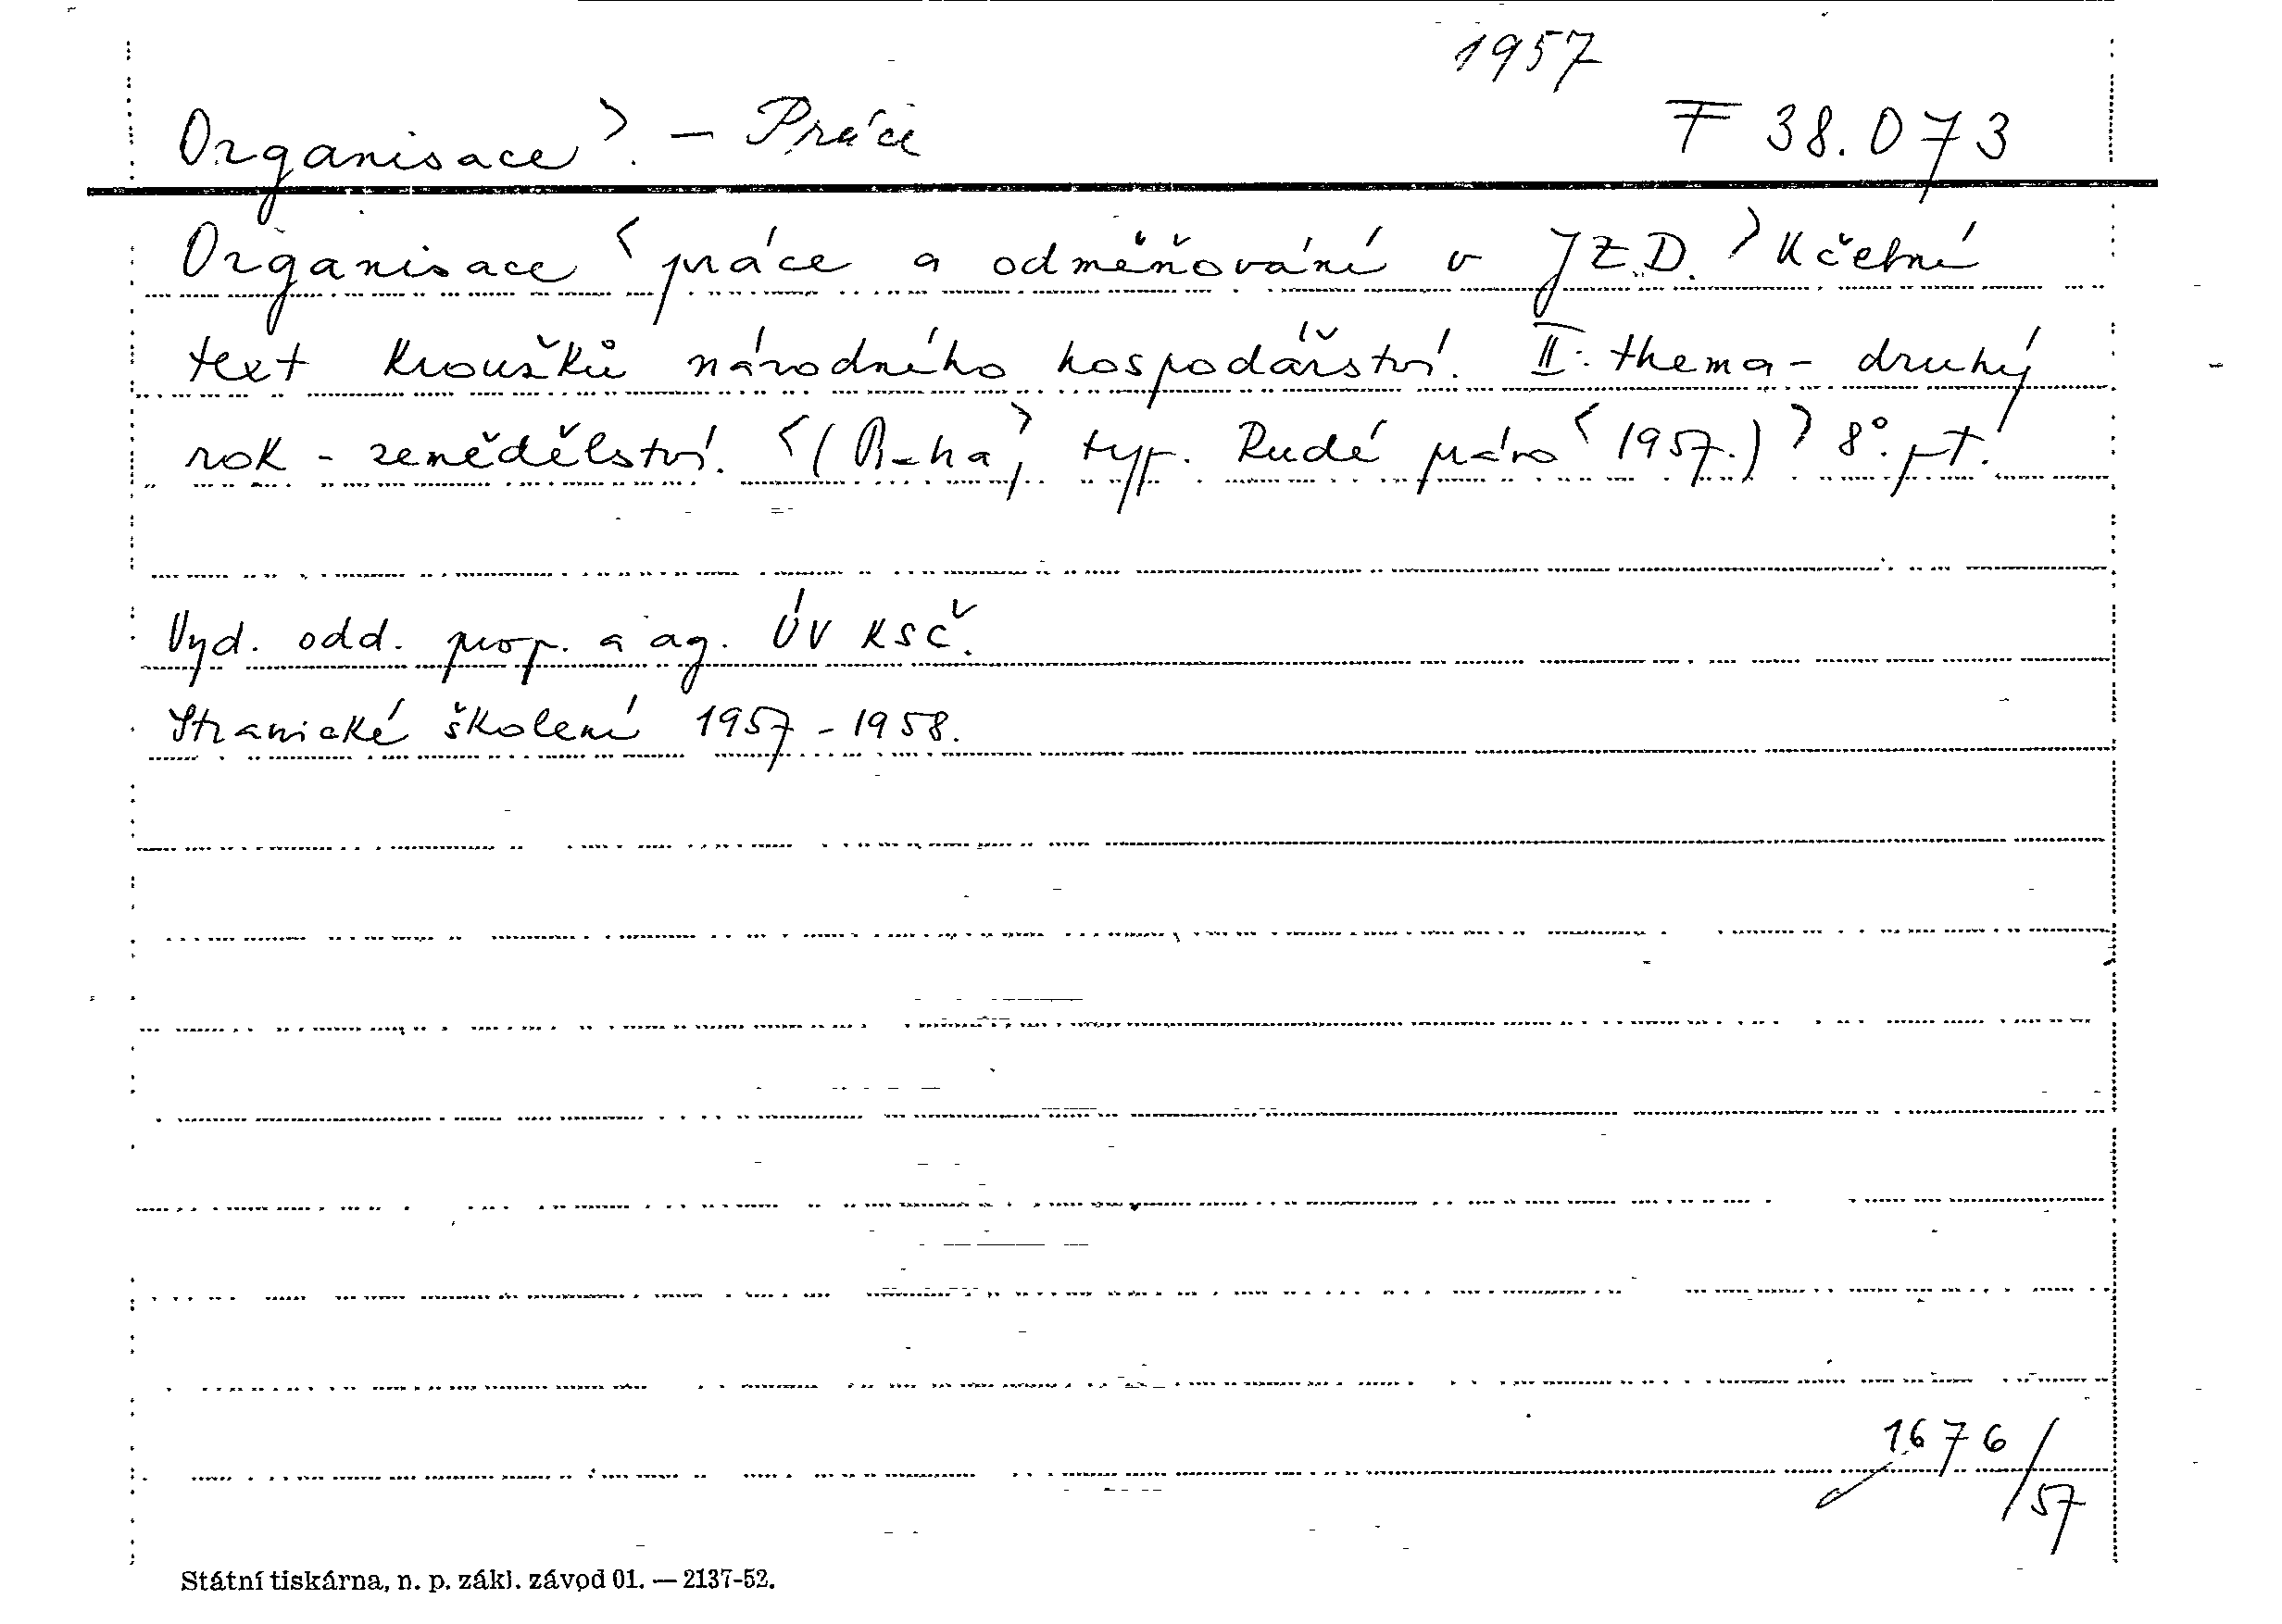 1957
Organisace〉. — Práce F 38.073
Organisace 〈práce a odměňování v JZD.〉 Učební
text kroužků národního hospodářství. II. thema - druhý
rok - zemědělství. 〈(Praha〉, typ. Rudé právo 〈1957.)〉 8°.
Vyd. odd. prop. a ag. ÚV KSČ.
Stranické školení 1957 - 1958.
1676/57
Státní tiskárna, n. p. zákl. závod 01. — 2137-52.